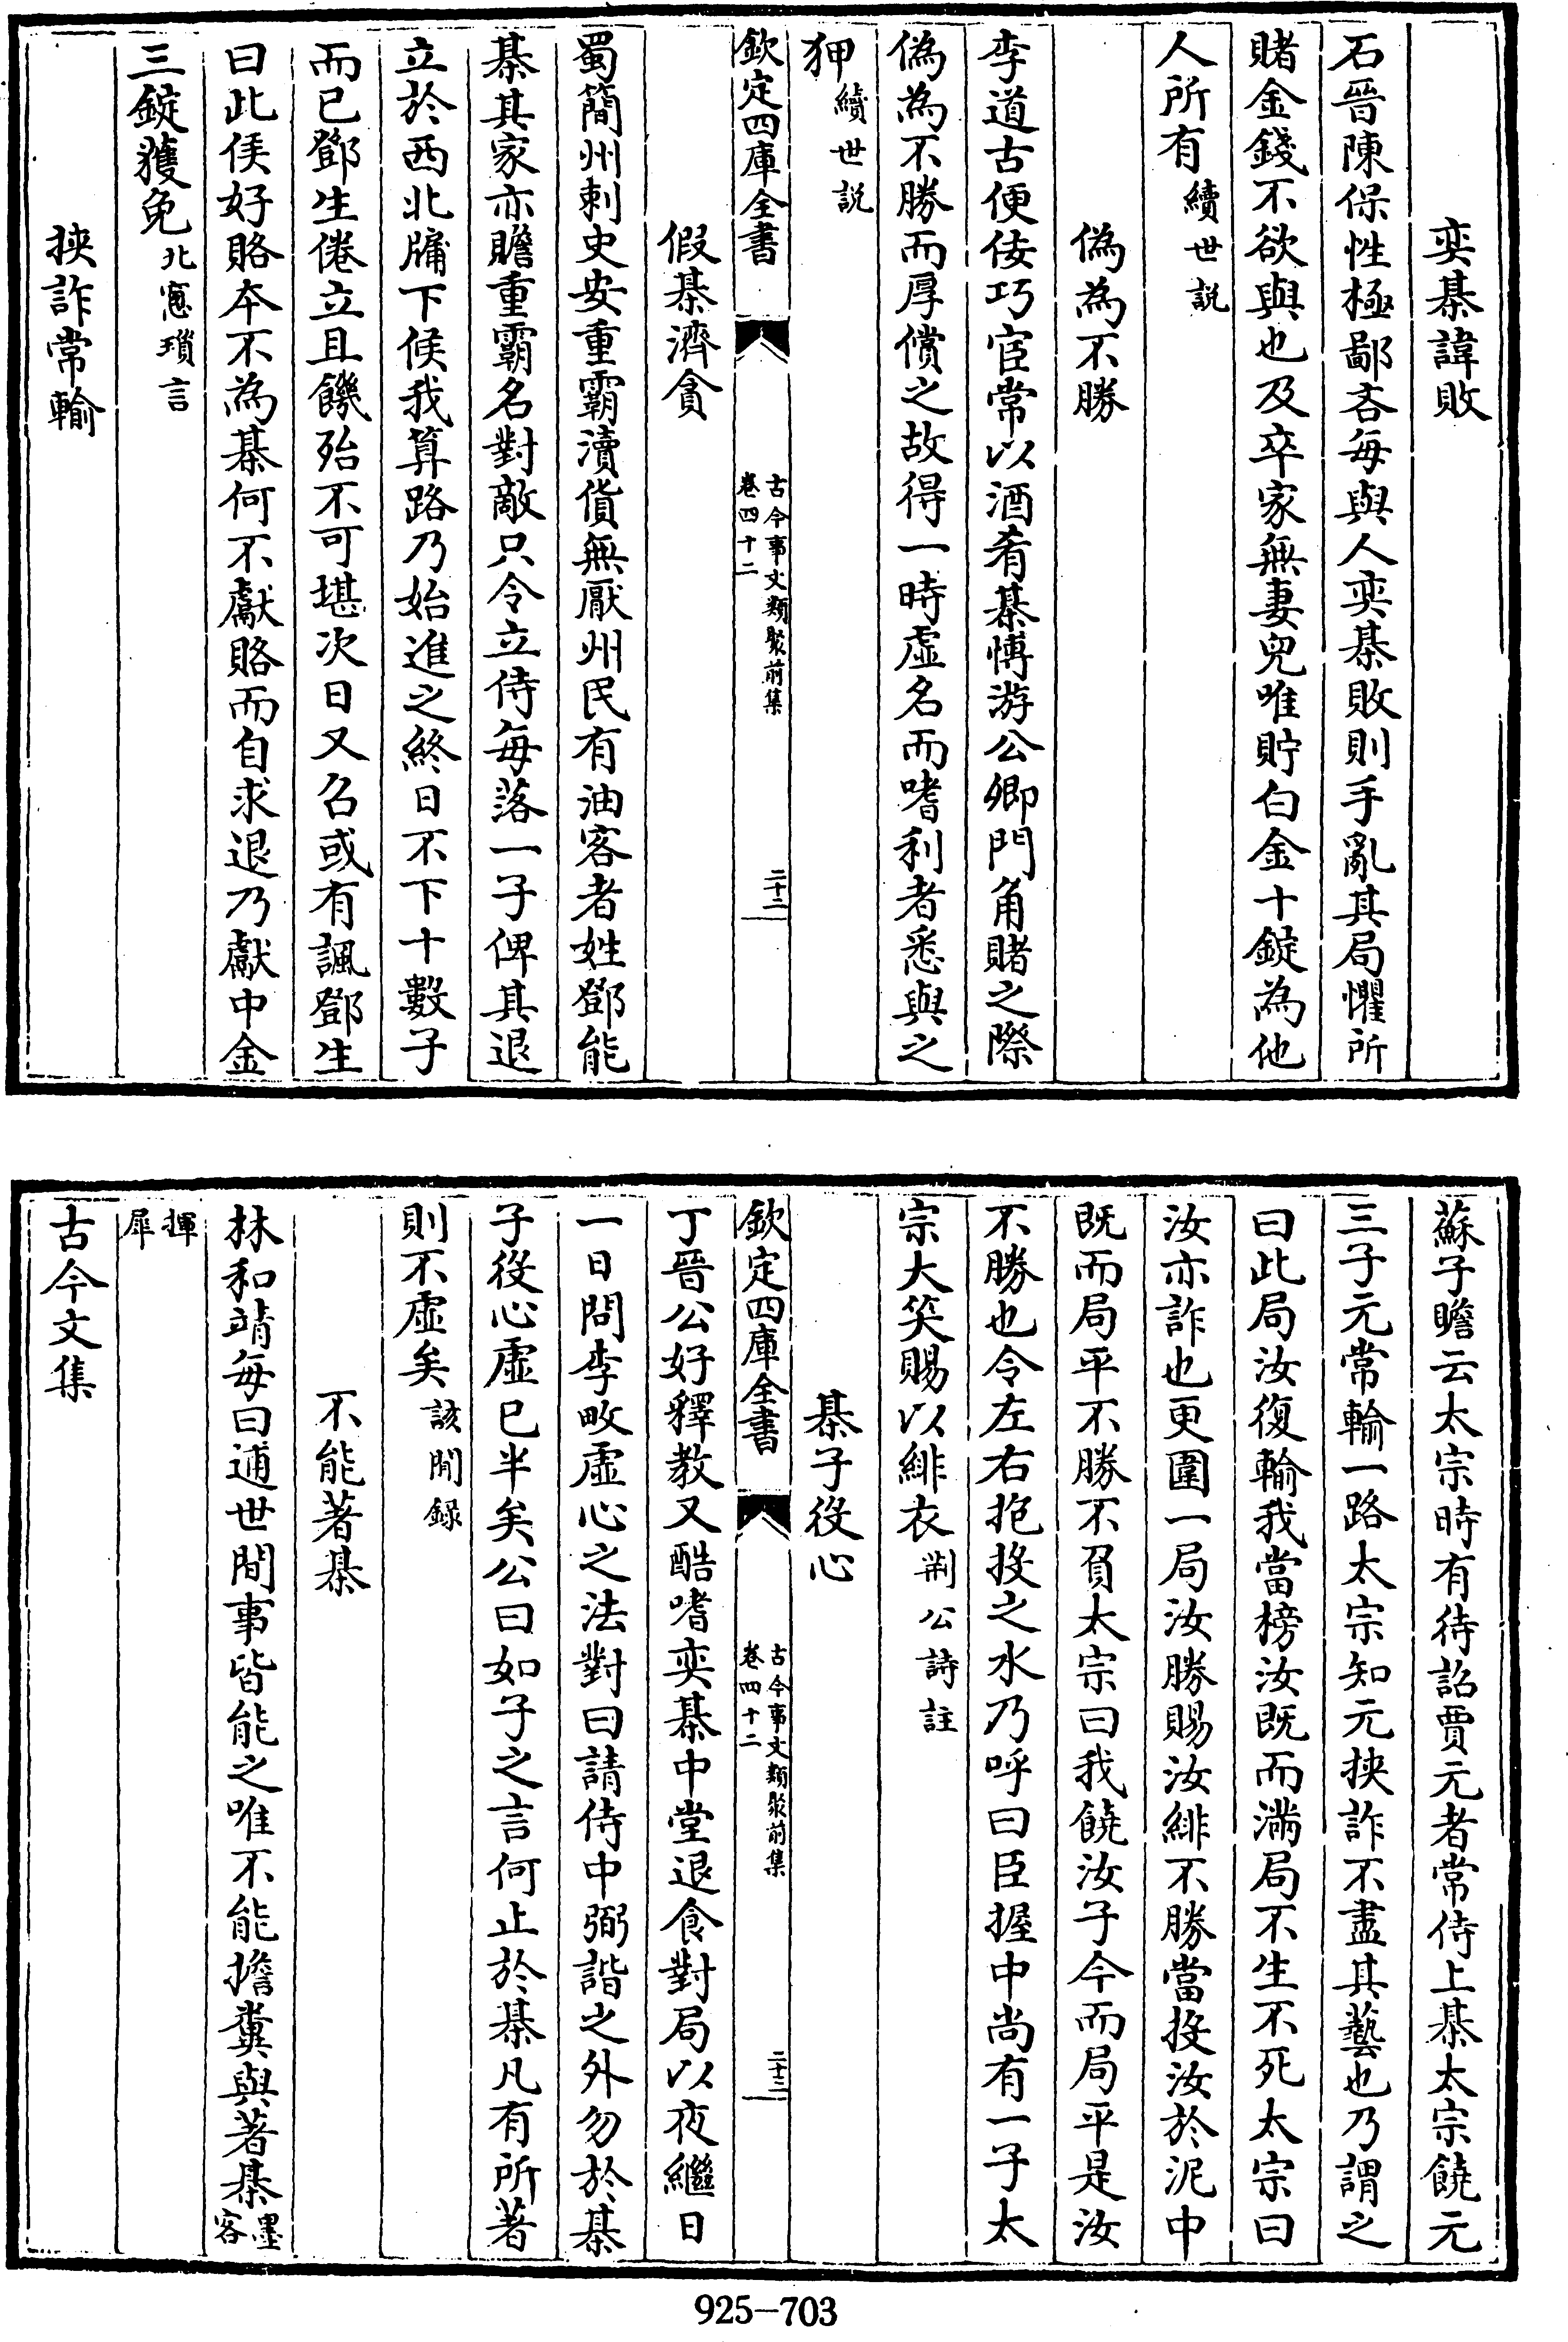 奕棊諱敗
石晉陳保性極鄙吝每與人奕棊敗則手亂其局懼所
賭金錢不欲與也及卒家無妻兒唯貯白金十錠為他
人所有續世説
偽為不勝
李道古便佞巧宦常以酒肴棊博游公卿門角賭之際
偽為不勝而厚償之故得一時虛名而嗜利者悉與之
狎續世説
欽定四庫全書
古今事文類聚前集
卷四十二
二十二
假棊濟貪
蜀簡州刺史安重霸瀆貨無厭州民有油客者姓鄧能
棊其家亦贍重霸名對敵只令立侍每落一子俾其退
立於西北牖下候我算路乃始進之終日不下十數子
而已鄧生倦立且饑殆不可堪次日又召或有諷鄧生
曰此侯好賂本不為棊何不獻賂而自求退乃獻中金
三錠獲免北窻瑣言
挾詐常輸
蘇子瞻云太宗時有待詔賈元者常侍上棊太宗饒元
三子元常輸一路太宗知元挾詐不盡其藝也乃謂之
曰此局汝復輸我當榜汝既而滿局不生不死太宗曰
汝亦詐也更圍一局汝勝賜汝緋不勝當投汝於泥中
既而局平不勝不負太宗曰我饒汝子今而局平是汝
不勝也令左右抱投之水乃呼曰臣握中尚有一子太
宗大笑賜以緋衣荆公詩註
棊子役心
欽定四庫全書
古今事文類聚前集
卷四十二
二十三
丁晉公好釋教又酷嗜奕棊中堂退食對局以夜繼日
一日問李畋虛心之法對曰請侍中弼諧之外勿於棊
子役心虛已半矣公曰如子之言何止於棊凡有所著
則不虛矣該聞録
不能著棊
林和靖每曰逋世間事皆能之唯不能擔糞與著棊墨客
揮犀
古今文集
925-703